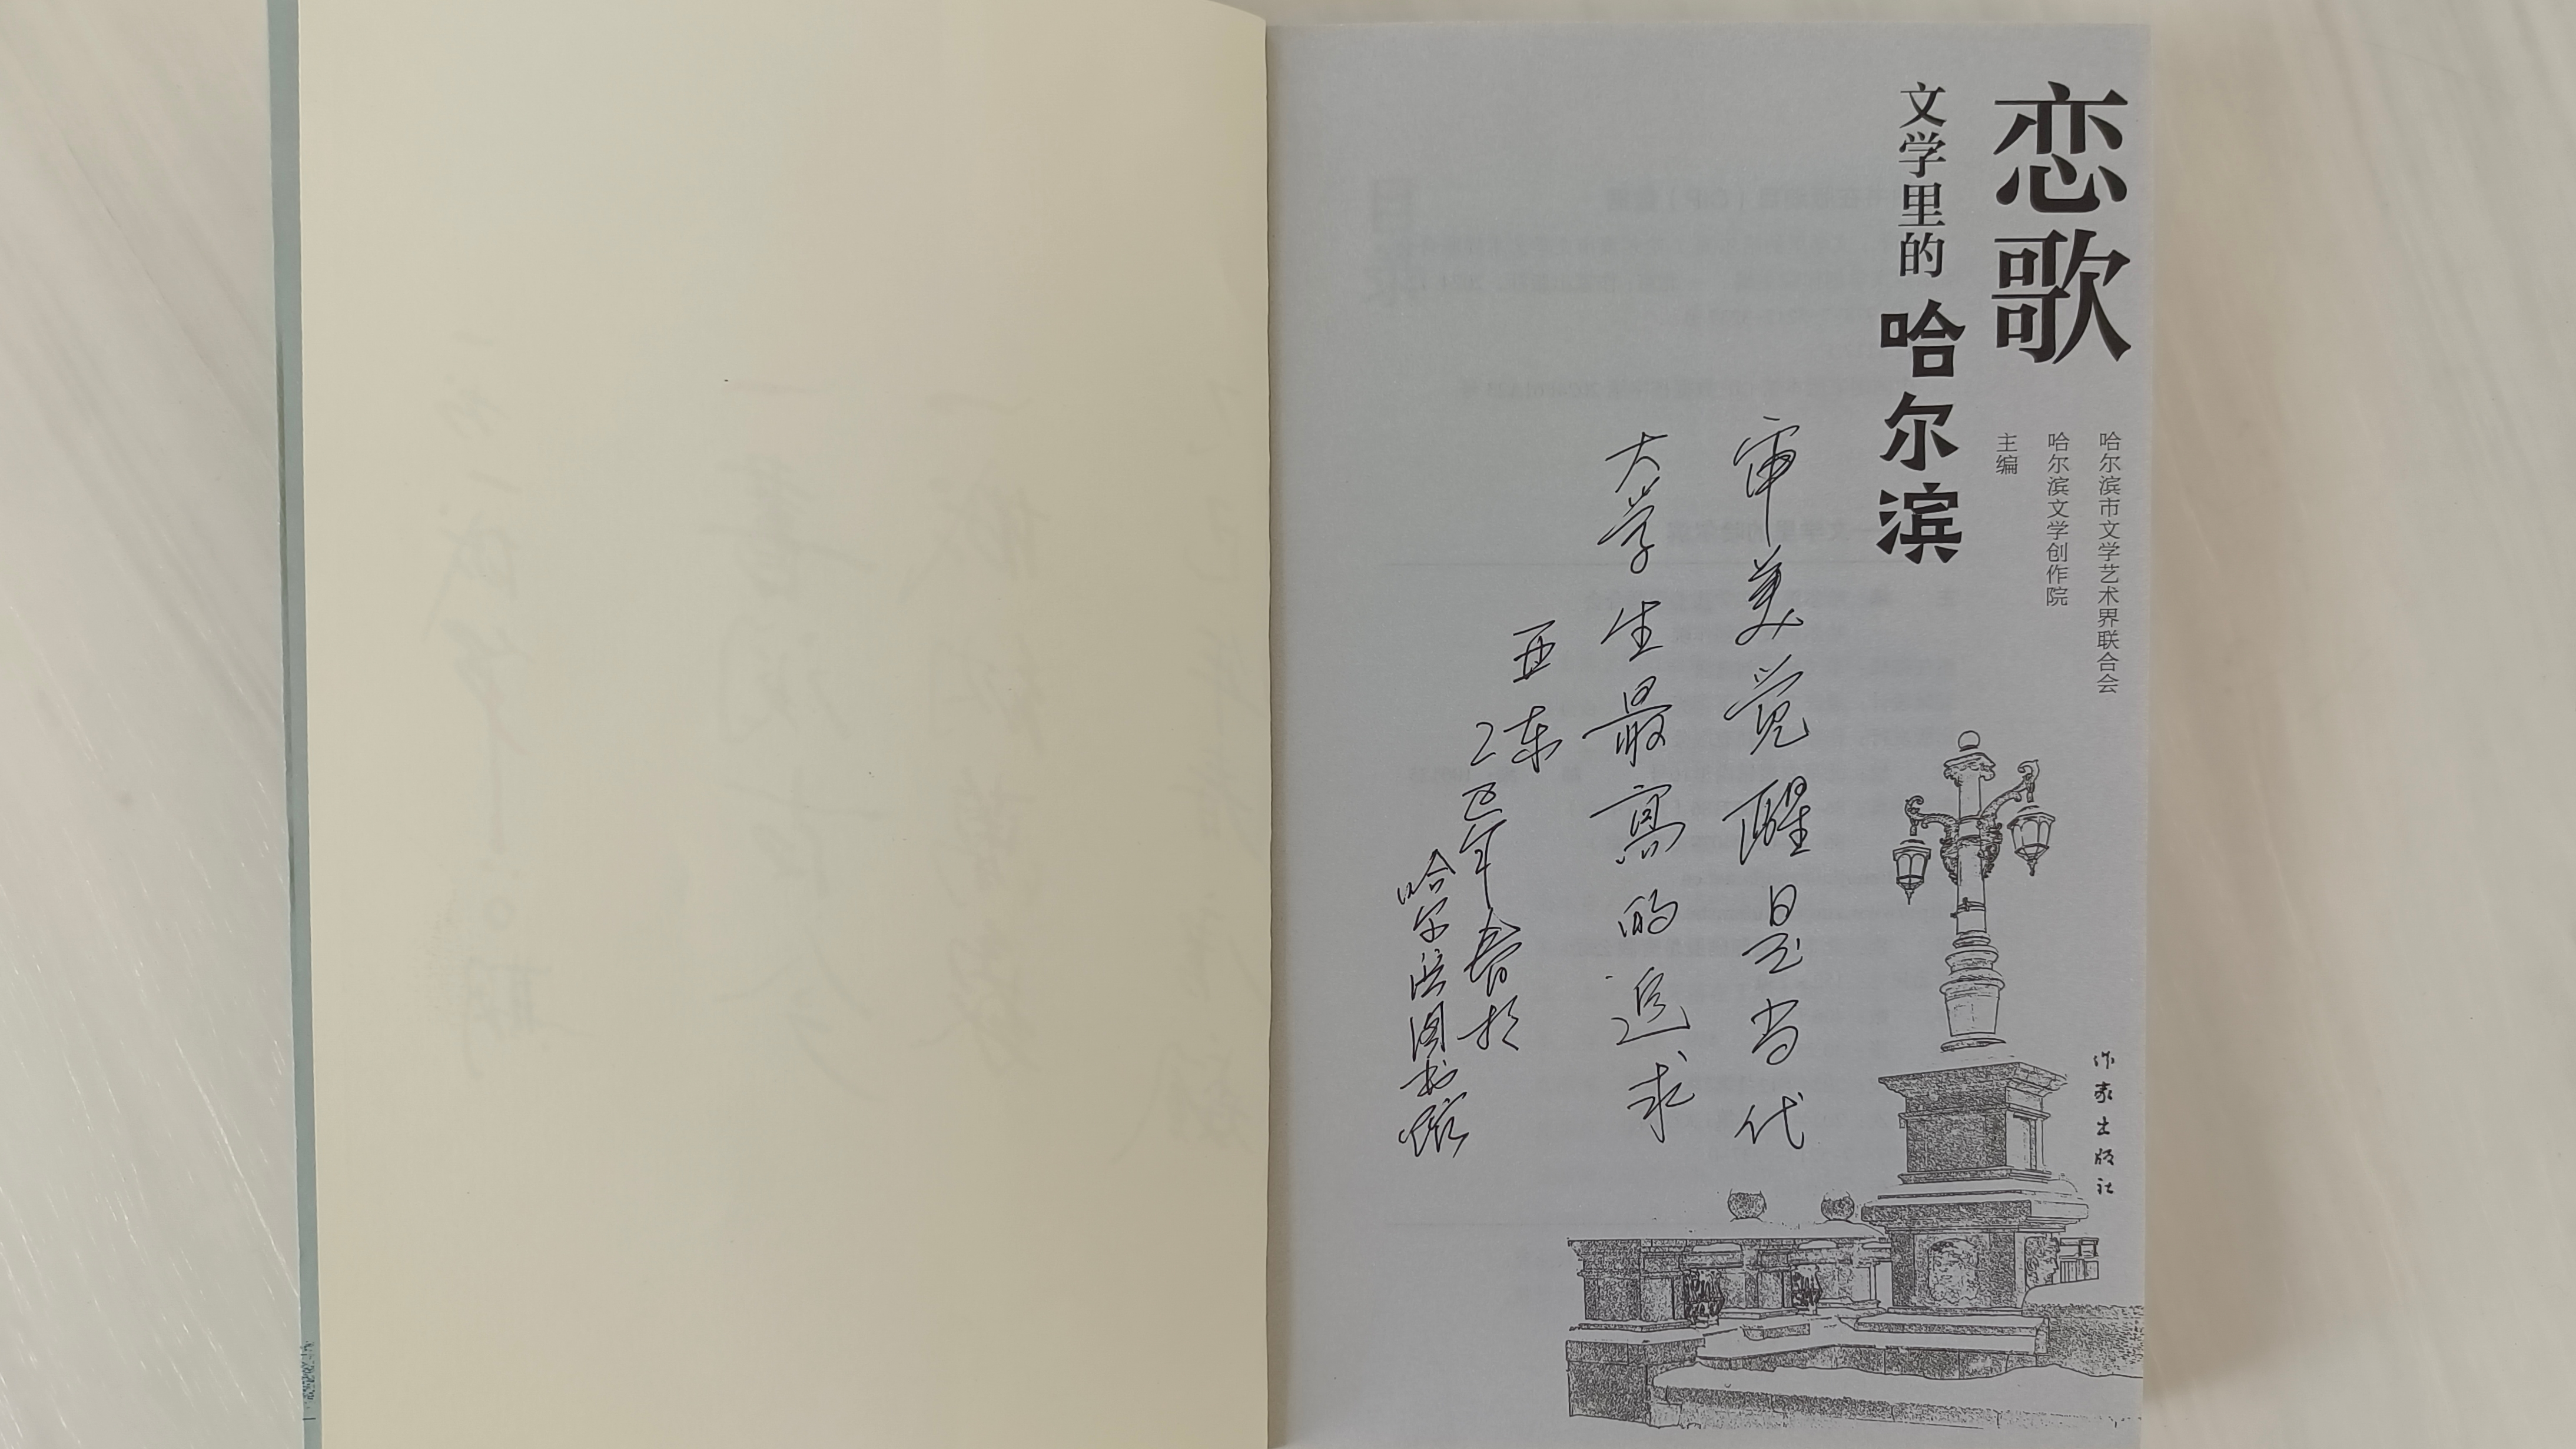 恋歌
文学里的哈尔滨
哈尔滨市文学艺术界联合会
哈尔滨文学创作院
主编
作家出版社
审美觉醒是当代
大学生最高的追求
亚东
乙巳年春於
哈尔滨图书馆